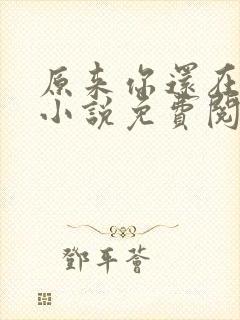 原来你還在
小說免費閱
鄧平薈